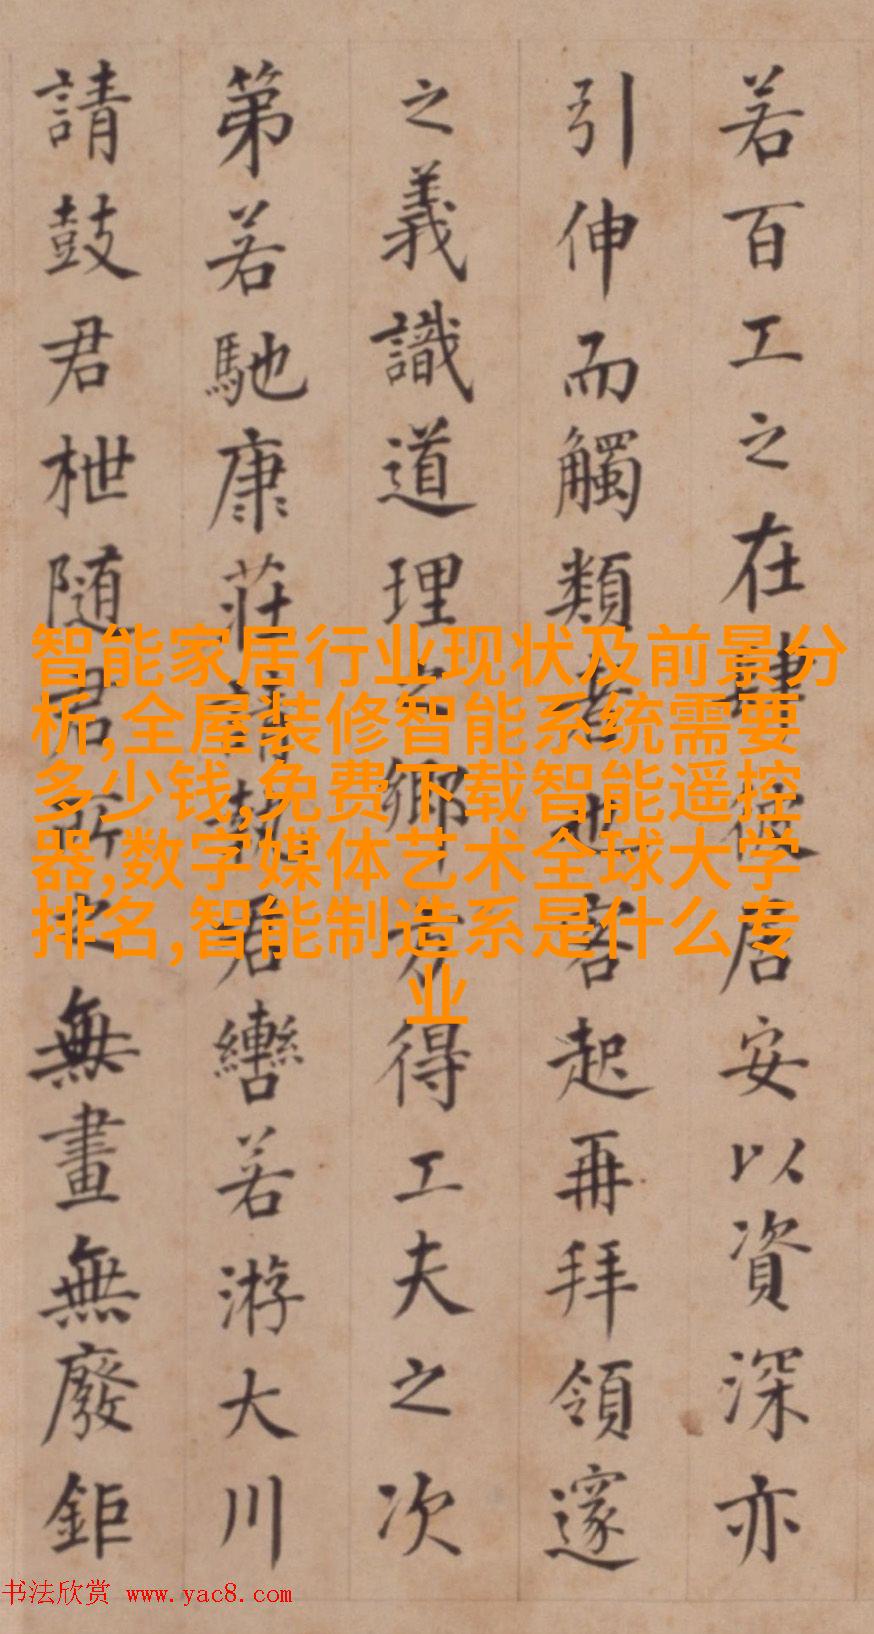 若百工之在肆居安以資深亦
引伸而觸類者也客起再拜領邃
之義識道理之鄉方得工夫之次
第若馳康莊請執君轡若游大川
請鼓君枻随君所之無畫無廢鉅
智能家居行业现状及前景分
析,全屋装修智能系统需要
多少钱,免费下载智能遥控
器,数字媒体艺术全球大学
排名,智能制造系是什么专
业
书法欣赏 www.yac8.com